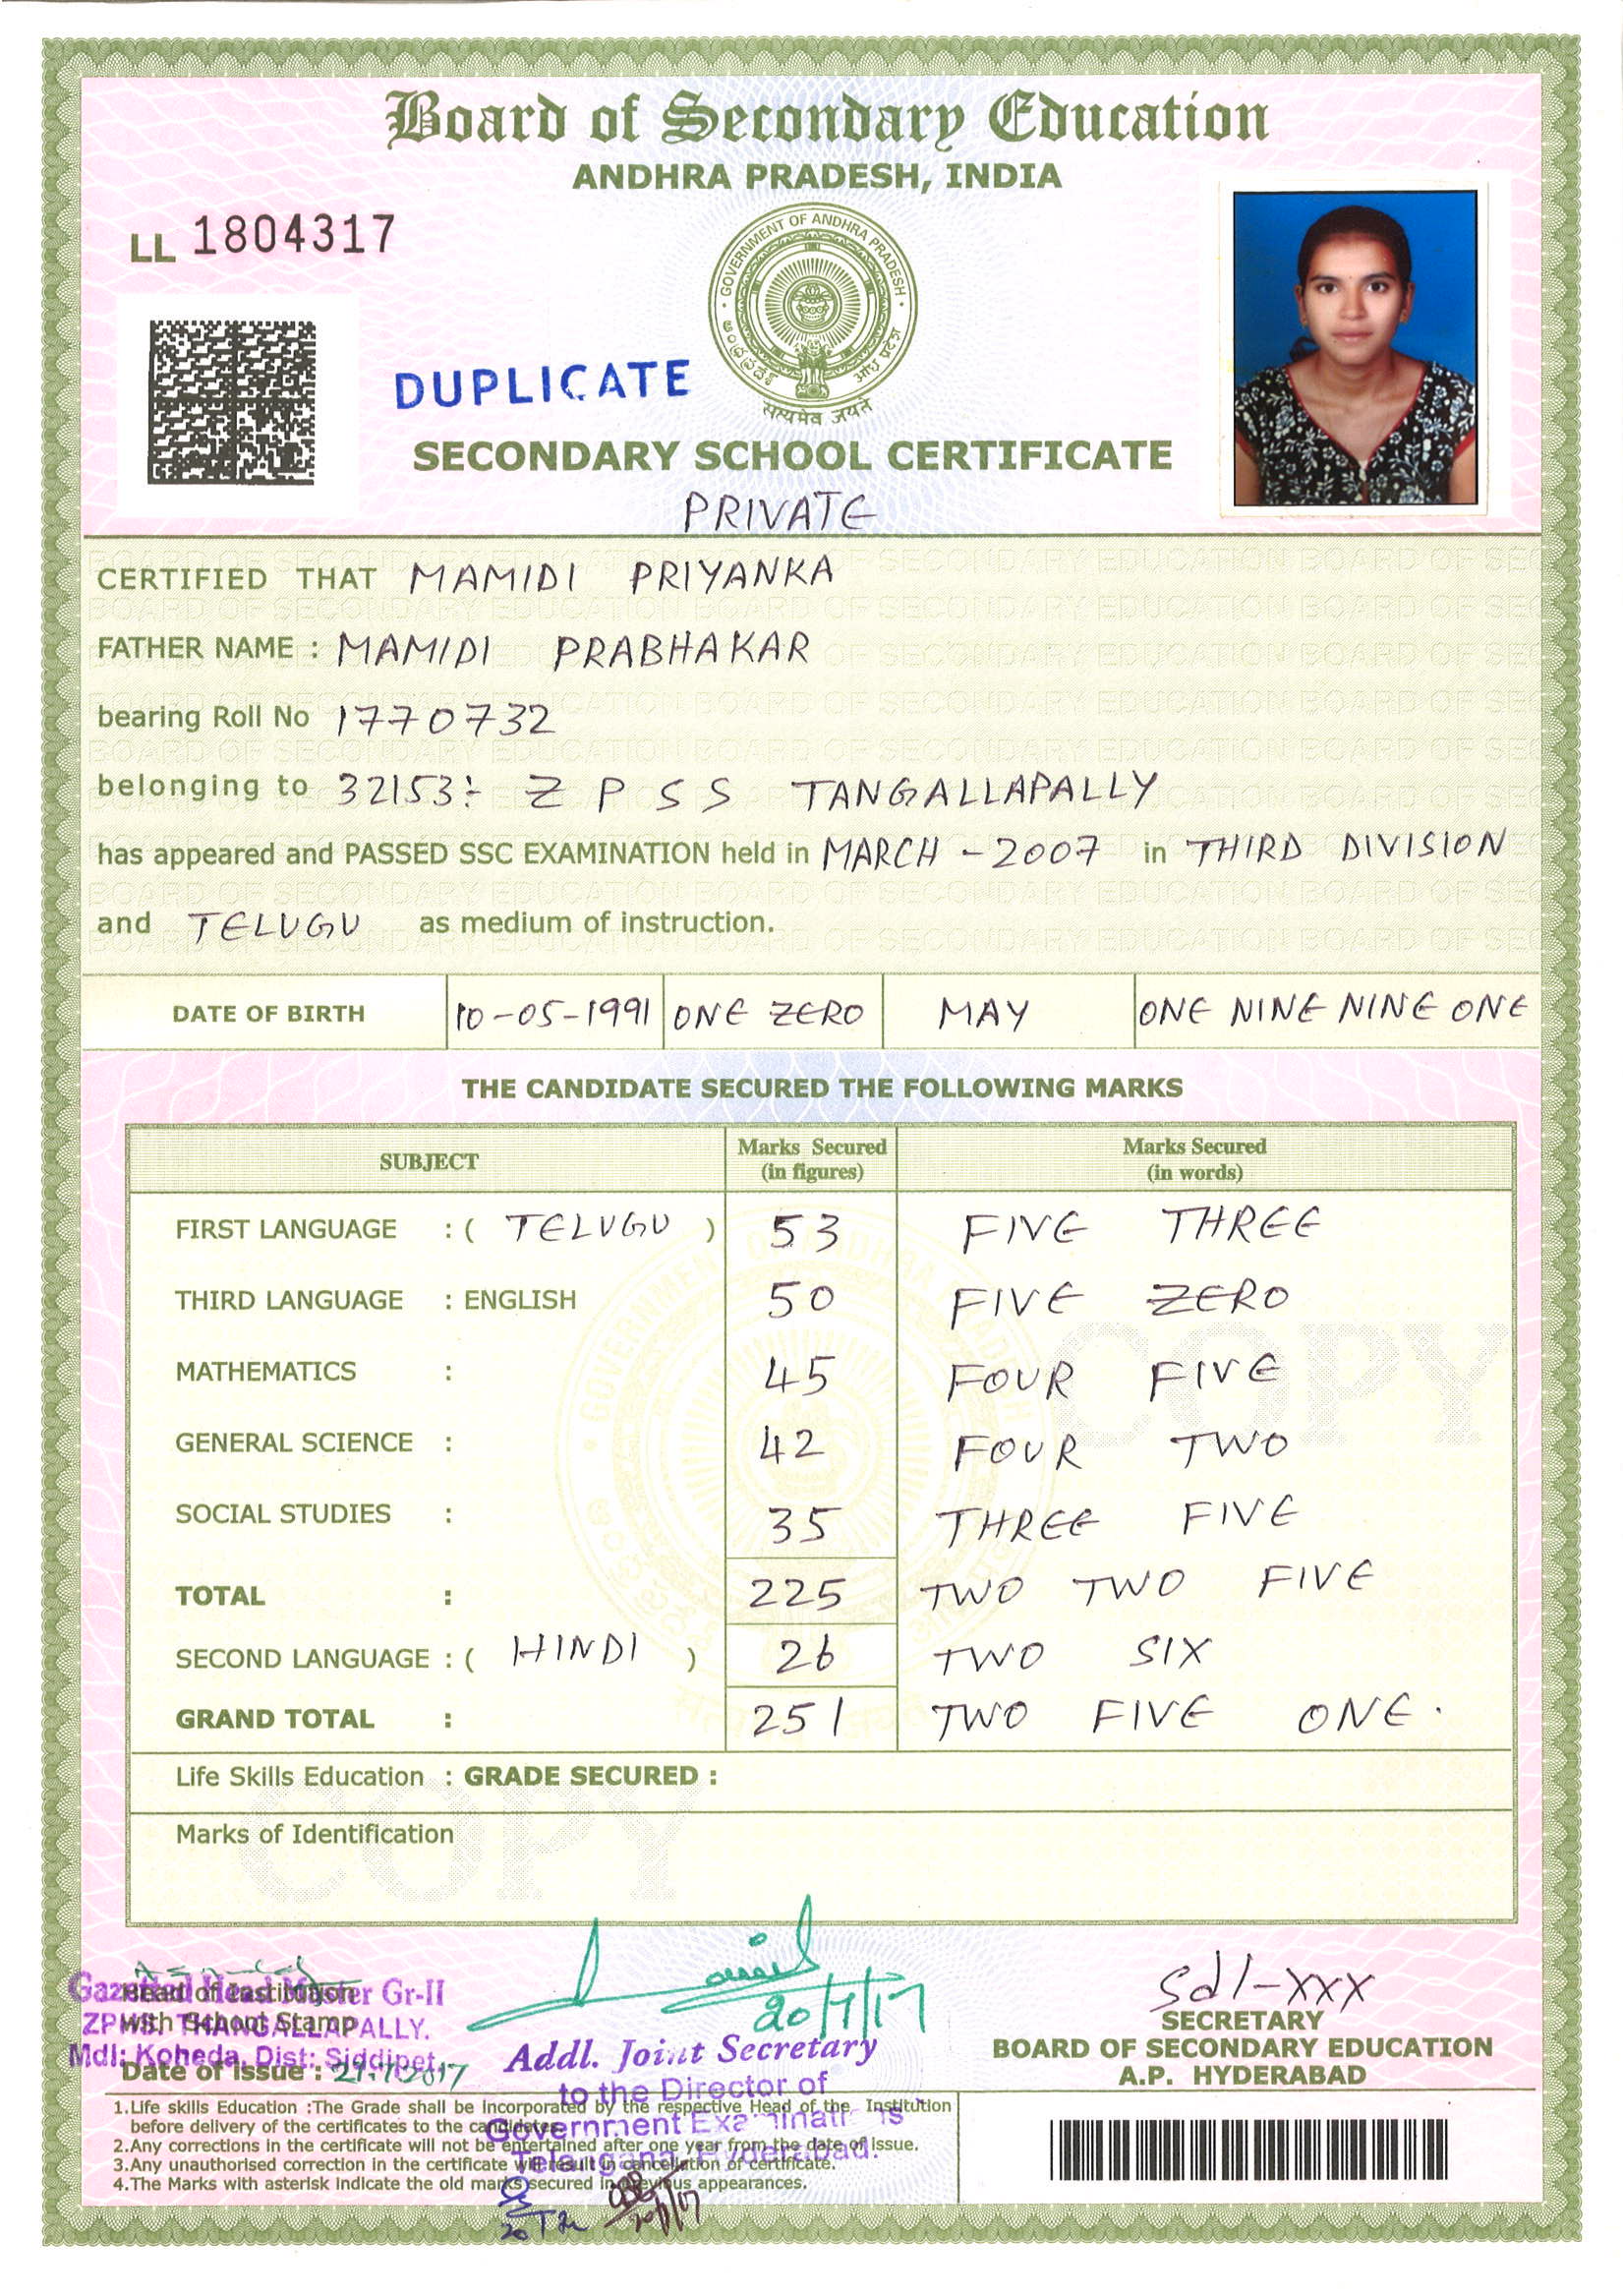 Board of Secondary Education
ANDHRA PRADESH, INDIA
LL 1804317
GOVERNMENT OF ANDHRA PRADESH
ఆంధ్రప్రదేశ్
आंध्र प्रदेश
सत्यमेव जयते
DUPLICATE
SECONDARY SCHOOL CERTIFICATE
PRIVATE
CERTIFIED THAT MAMIDI PRIYANKA
FATHER NAME : MAMIDI PRABHAKAR
bearing Roll No 1770732
belonging to 32153:- Z P S S TANGALLAPALLY
has appeared and PASSED SSC EXAMINATION held in MARCH - 2007 in THIRD DIVISION
and TELUGU as medium of instruction.
DATE OF BIRTH 10-05-1991 ONE ZERO MAY ONE NINE NINE ONE
THE CANDIDATE SECURED THE FOLLOWING MARKS
SUBJECT Marks Secured (in figures) Marks Secured (in words)
FIRST LANGUAGE : ( TELUGU ) 53 FIVE THREE
THIRD LANGUAGE : ENGLISH 50 FIVE ZERO
MATHEMATICS : 45 FOUR FIVE
GENERAL SCIENCE : 42 FOUR TWO
SOCIAL STUDIES : 35 THREE FIVE
TOTAL : 225 TWO TWO FIVE
SECOND LANGUAGE : ( HINDI ) 26 TWO SIX
GRAND TOTAL : 251 TWO FIVE ONE.
COPY
Life Skills Education : GRADE SECURED :
Marks of Identification
COPY
Gazetted Head Master Gr-II
ZPHS. THANGALLAPALLY.
Mdl: Koheda, Dist: Siddipet.
Head of Institution
with School Stamp
Date of issue : 21.7.2017
20/7/17
Addl. Joint Secretary
to the Director of
Government Examinations
Telangana, Hyderabad.
Sd/-xxx
SECRETARY
BOARD OF SECONDARY EDUCATION
A.P. HYDERABAD
1.Life skills Education :The Grade shall be incorporated by the respective Head of the Institution
before delivery of the certificates to the candidates.
2.Any corrections in the certificate will not be entertained after one year from the date of issue.
3.Any unauthorised correction in the certificate will result in cancellation of certificate.
4.The Marks with asterisk indicate the old marks secured in previous appearances.